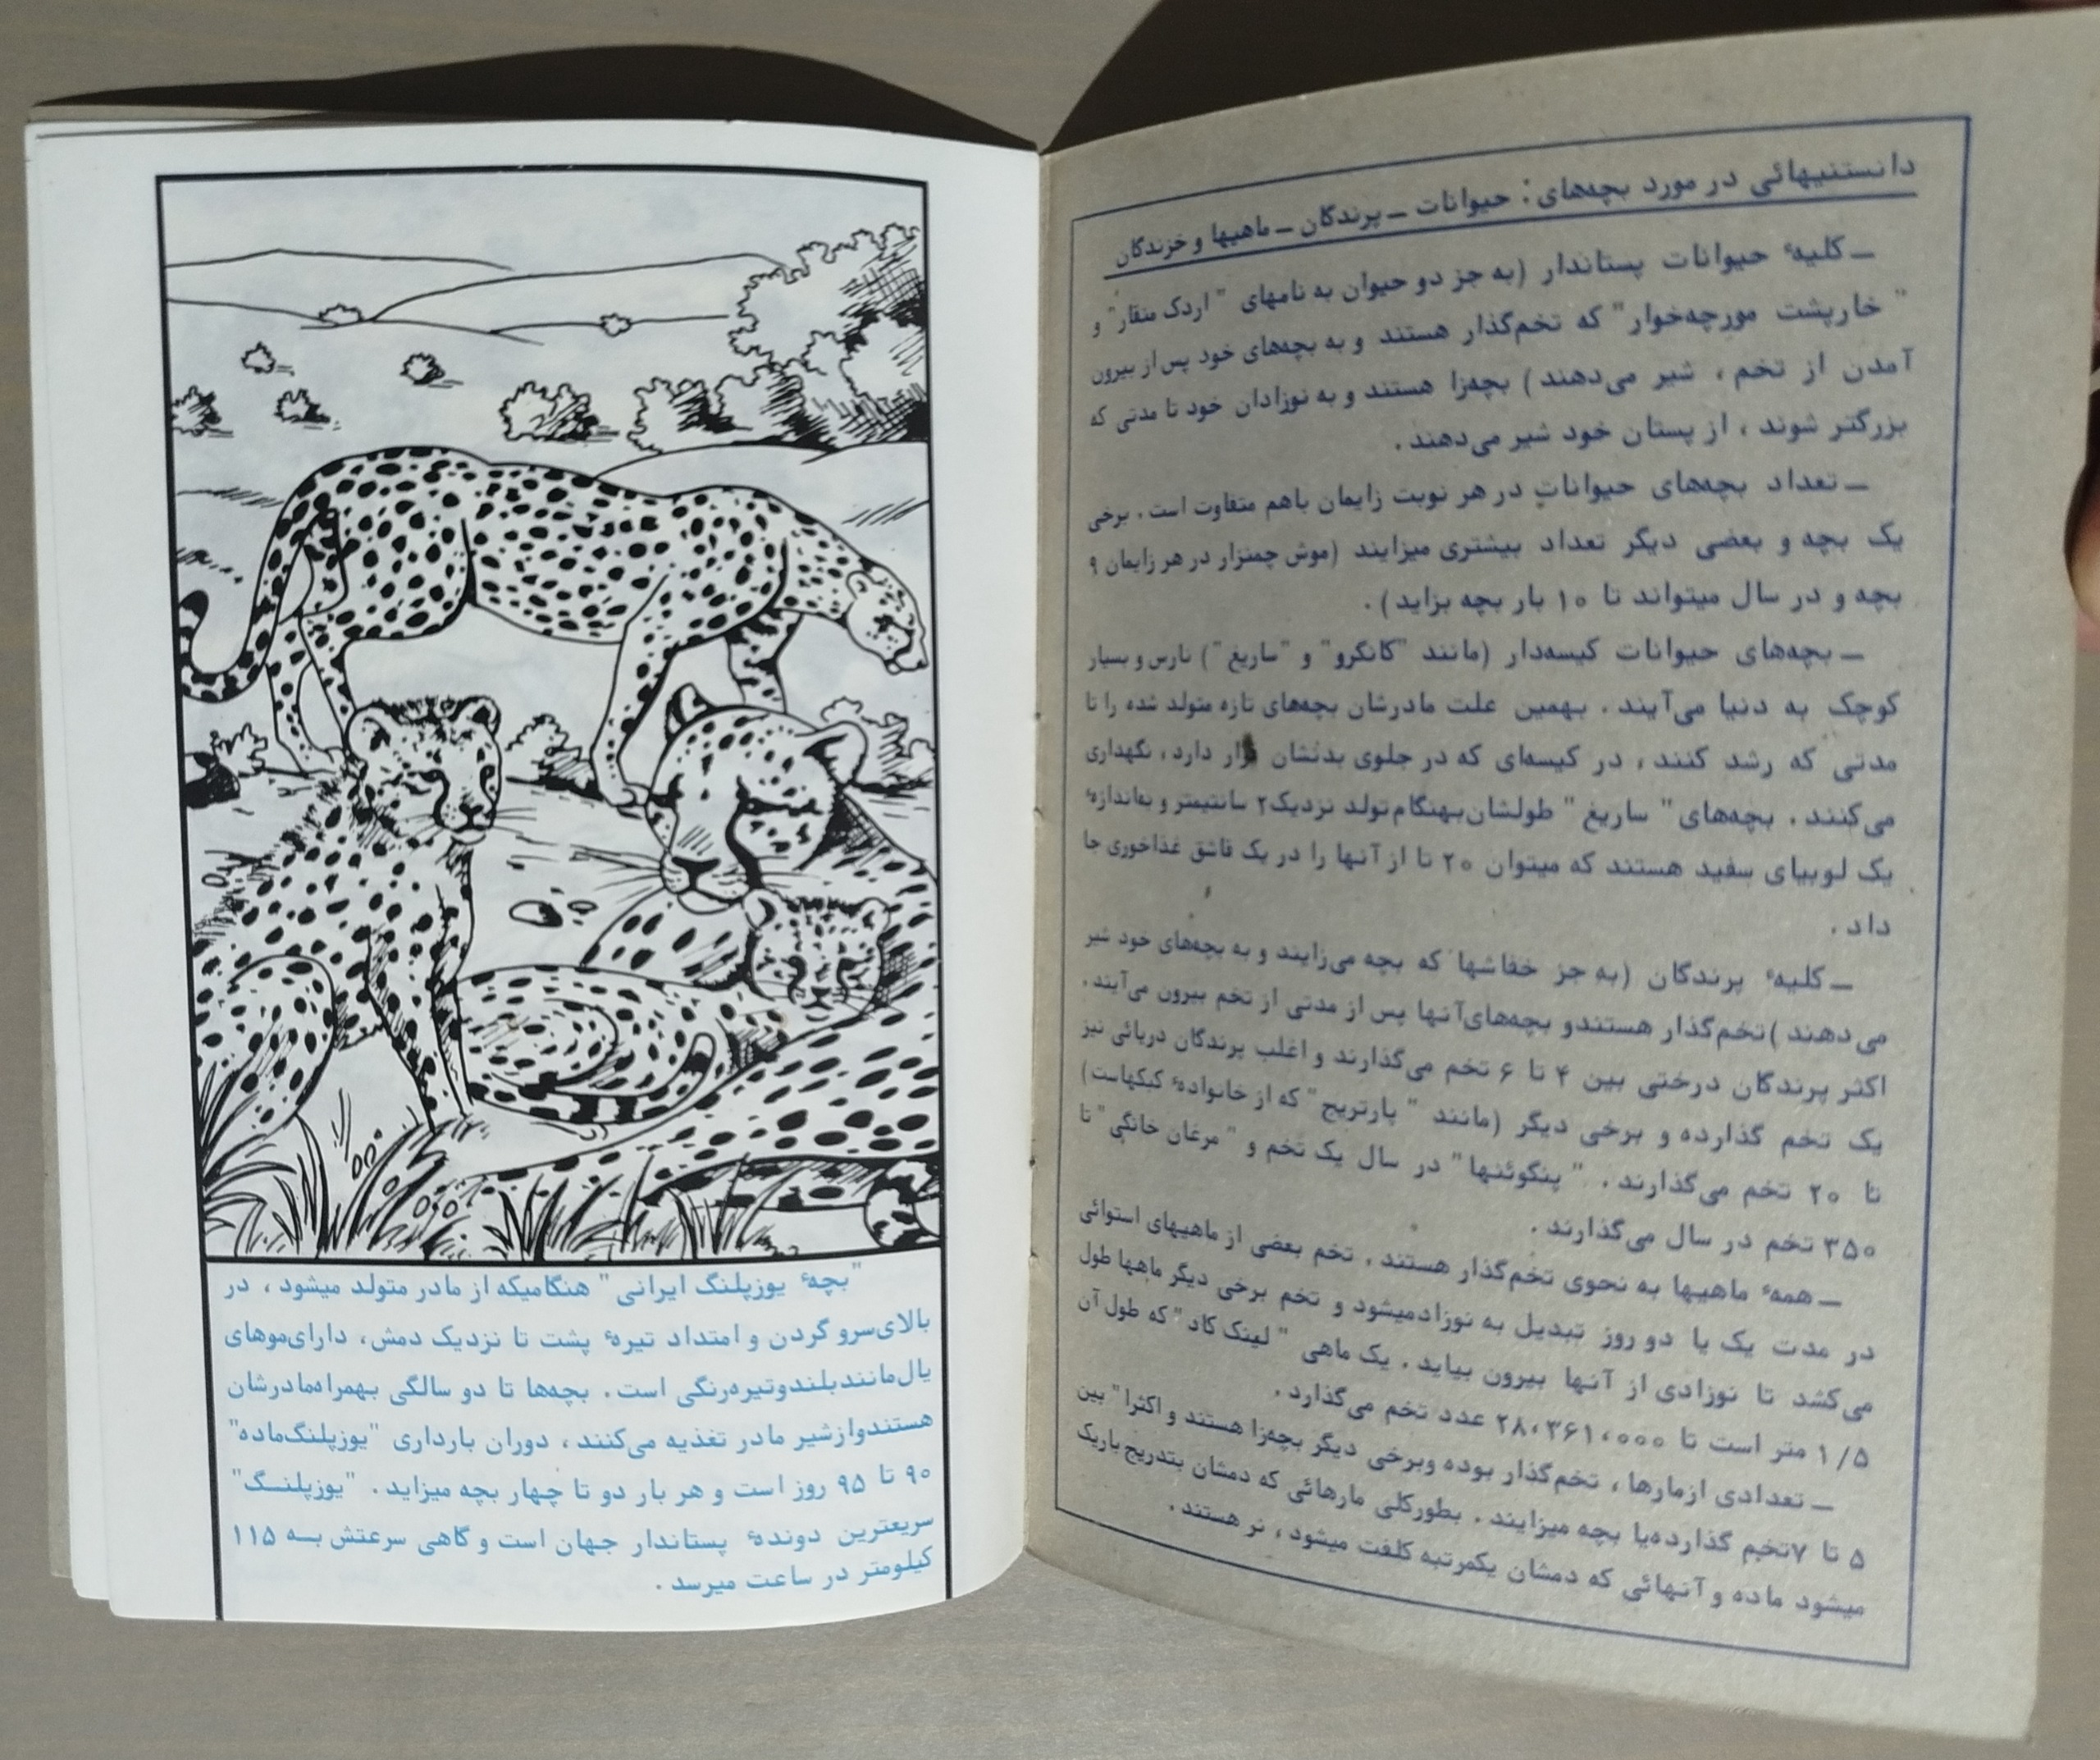 دانستنیهائی در مورد بچه‌های : حیوانات ــ پرندگان ــ ماهیها و خزندگان
ــ کلیهٔ حیوانات پستاندار (به جز دو حیوان به نامهای " اردک منقار" و
" خارپشت مورچه‌خوار" که تخم‌گذار هستند و به بچه‌های خود پس از بیرون
آمدن از تخم ، شیر می‌دهند ) بچه‌زا هستند و به نوزادان خود تا مدتی که
بزرگتر شوند ، از پستان خود شیر می‌دهند .
ــ تعداد بچه‌های حیوانات در هر نوبت زایمان باهم متفاوت است . برخی
یک بچه و بعضی دیگر تعداد بیشتری میزایند (موش چمنزار در هر زایمان ۹
بچه و در سال میتواند تا ۱۰ بار بچه بزاید) .
ــ بچه‌های حیوانات کیسه‌دار (مانند "کانگرو" و "ساریغ ") نارس و بسیار
کوچک به دنیا می‌آیند . بهمین علت مادرشان بچه‌های تازه متولد شده را تا
مدتی که رشد کنند ، در کیسه‌ای که در جلوی بدنشان قرار دارد ، نگهداری
می‌کنند . بچه‌های " ساریغ " طولشان‌بهنگام‌تولد نزدیک۲ سانتیمتر و به‌اندازهٔ
یک لوبیای سفید هستند که میتوان ۲۰ تا از آنها را در یک قاشق غذاخوری جا
داد .
ــ کلیهٔ پرندگان (به جز خفاشها که بچه می‌زایند و به بچه‌های خود شیر
می‌دهند )تخم‌گذار هستندو بچه‌های‌آنها پس از مدتی از تخم بیرون می‌آیند .
اکثر پرندگان درختی بین ۴ تا ۶ تخم می‌گذارند و اغلب پرندگان دریائی نیز
یک تخم گذارده و برخی دیگر (مانند " پارتریج " که از خانوادهٔ کبکهاست)
تا ۲۰ تخم می‌گذارند . " پنگوئنها " در سال یک تخم و " مرغان خانگی " تا
۳۵۰ تخم در سال می‌گذارند .
ــ همهٔ ماهیها به نحوی تخم‌گذار هستند . تخم بعضی از ماهیهای استوائی
در مدت یک یا دو روز تبدیل به نوزادمیشود و تخم برخی دیگر ماهها طول
می‌کشد تا نوزادی از آنها بیرون بیاید . یک ماهی " لینک کاد " که طول آن
۱/۵ متر است تا ۲۸،۳۶۱،۰۰۰ عدد تخم می‌گذارد .
ــ تعدادی ازمارها ، تخم‌گذار بوده وبرخی دیگر بچه‌زا هستند و اکثرا" بین
۵ تا ۷تخم گذارده‌یا بچه میزایند . بطورکلی مارهائی که دمشان بتدریج باریک
میشود ماده و آنهائی که دمشان یکمرتبه کلفت میشود ، نر هستند .
"بچهٔ یوزپلنگ ایرانی" هنگامیکه از مادر متولد میشود ، در
بالای‌سرو گردن و امتداد تیرهٔ پشت تا نزدیک دمش، دارای‌موهای
یال‌مانندبلندوتیره‌رنگی است . بچه‌ها تا دو سالگی بهمراه‌مادرشان
هستندوازشیر مادر تغذیه می‌کنند ، دوران بارداری "یوزپلنگ‌ماده"
۹۰ تا ۹۵ روز است و هر بار دو تا چهار بچه میزاید . "یوزپلنگ"
سریعترین دوندهٔ پستاندار جهان است و گاهی سرعتش بــه ۱۱۵
کیلومتر در ساعت میرسد .